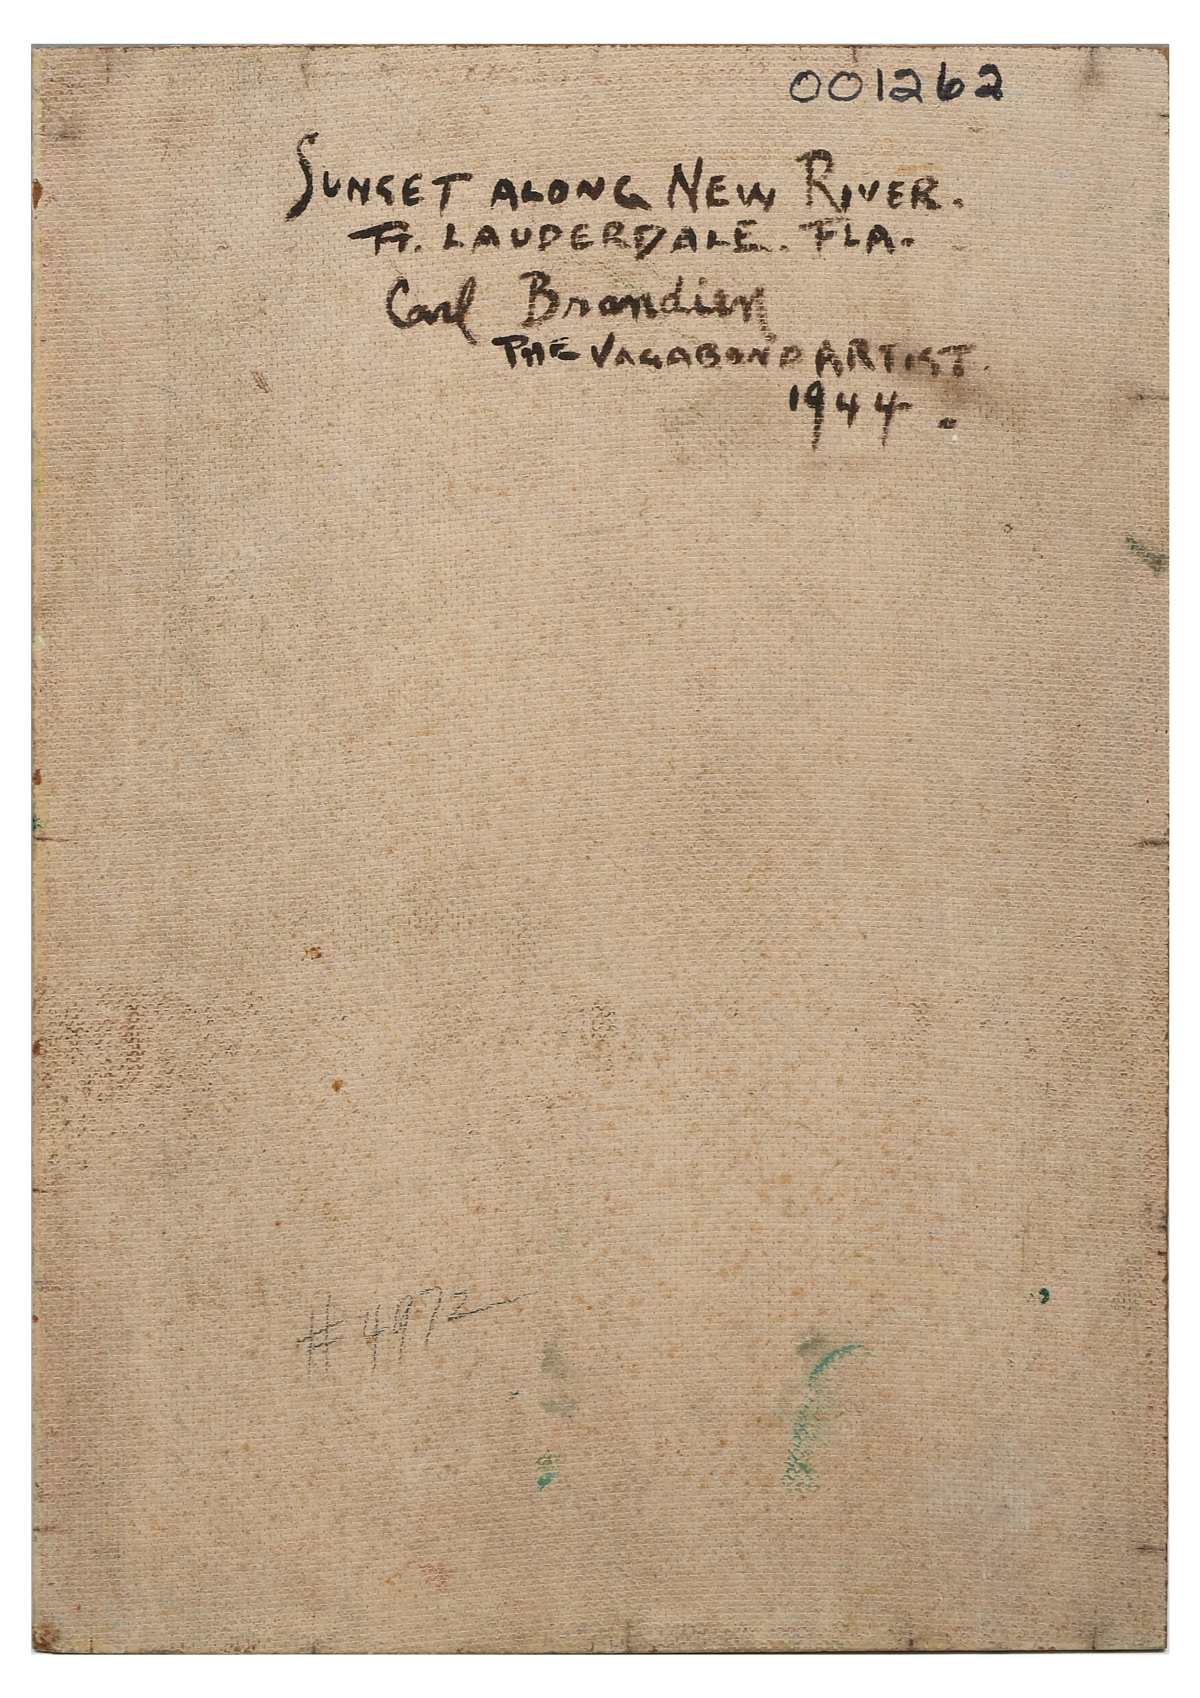 001262
SUNSET ALONG NEW RIVER.
FT. LAUDERDALE. FLA.
Carl Brandien
THE VAGABOND ARTIST.
1944.
# 4972